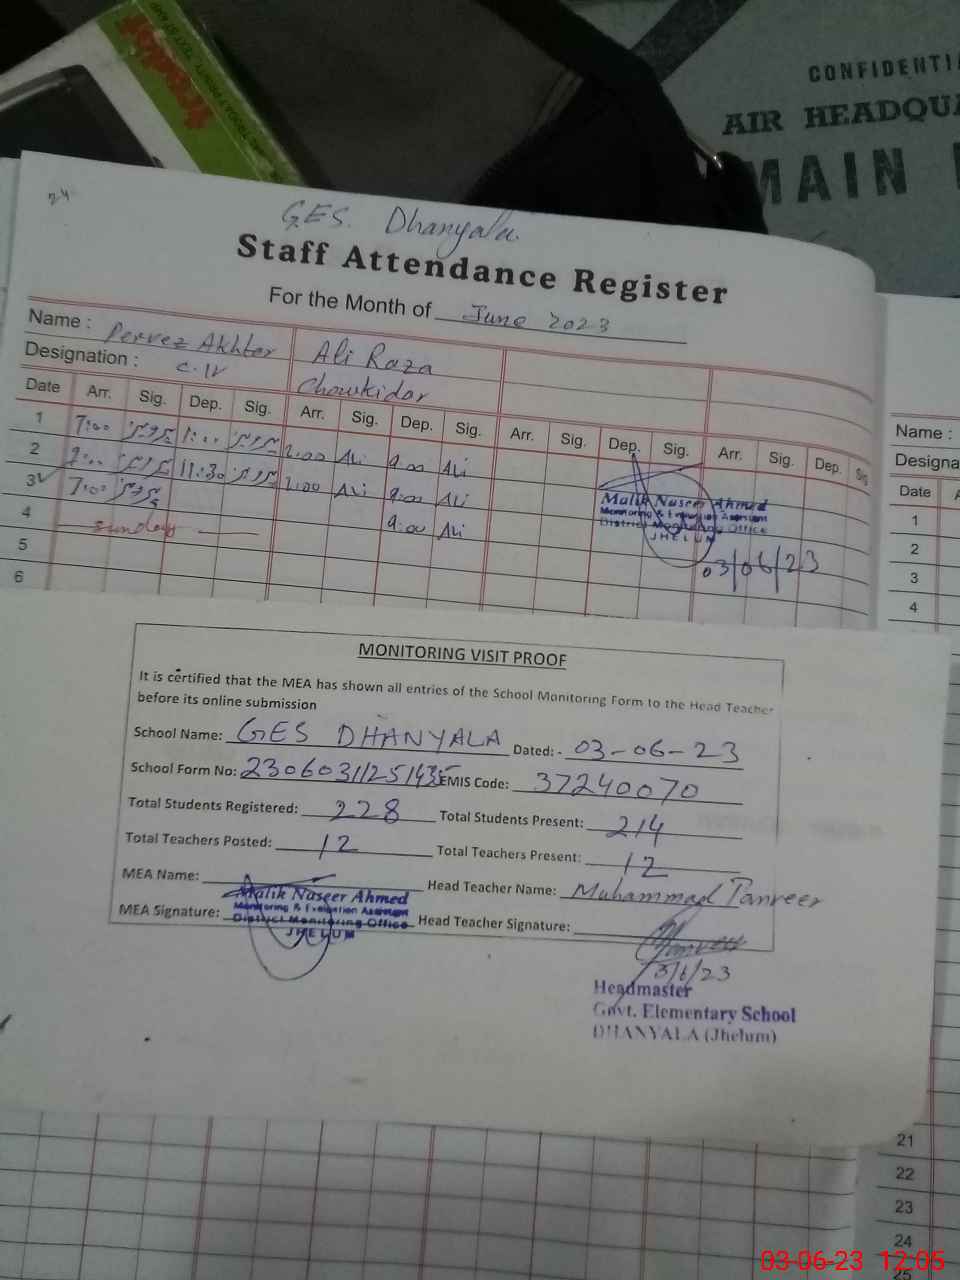 CONFIDENTI
AIR HEADQUA
MAIN
24
GES. Dhanyala.
Staff Attendance Register
For the Month of June 2023
Name : Pervez Akhter Ali Raza
Designation : C.IV Chowkidar
Date Arr. Sig. Dep. Sig. Arr. Sig. Dep. Sig. Arr. Sig. Dep. Sig. Arr. Sig. Dep. Sig
1 7:00 1:00 2:00 Ali 9:00 Ali
2 11:30 2:00 Ali 9:00 Ali
3 7:00 9:00 Ali
4 sunday
5
6
Malik Naseer Ahmed
Monitoring & Evaluation Assistant
District Monitoring Office
JHELUM
03/06/23
Name :
Designa
Date
1
2
3
4
MONITORING VISIT PROOF
It is certified that the MEA has shown all entries of the School Monitoring Form to the Head Teacher
before its online submission
School Name: GES DHANYALA Dated: - 03-06-23
School Form No: EMIS Code: 37240070
Total Students Registered: 228 Total Students Present: 214
Total Teachers Posted: 12 Total Teachers Present: 12
MEA Name: Head Teacher Name: Muhammad Tanveer
Malik Naseer Ahmed
Monitoring & Evaluation Assistant
MEA Signature: District Monitoring Office Head Teacher Signature:
JHELUM
3/6/23
Headmaster
Govt. Elementary School
DHANYALA (Jhelum)
21
22
23
24
25
03-06-23 12:05